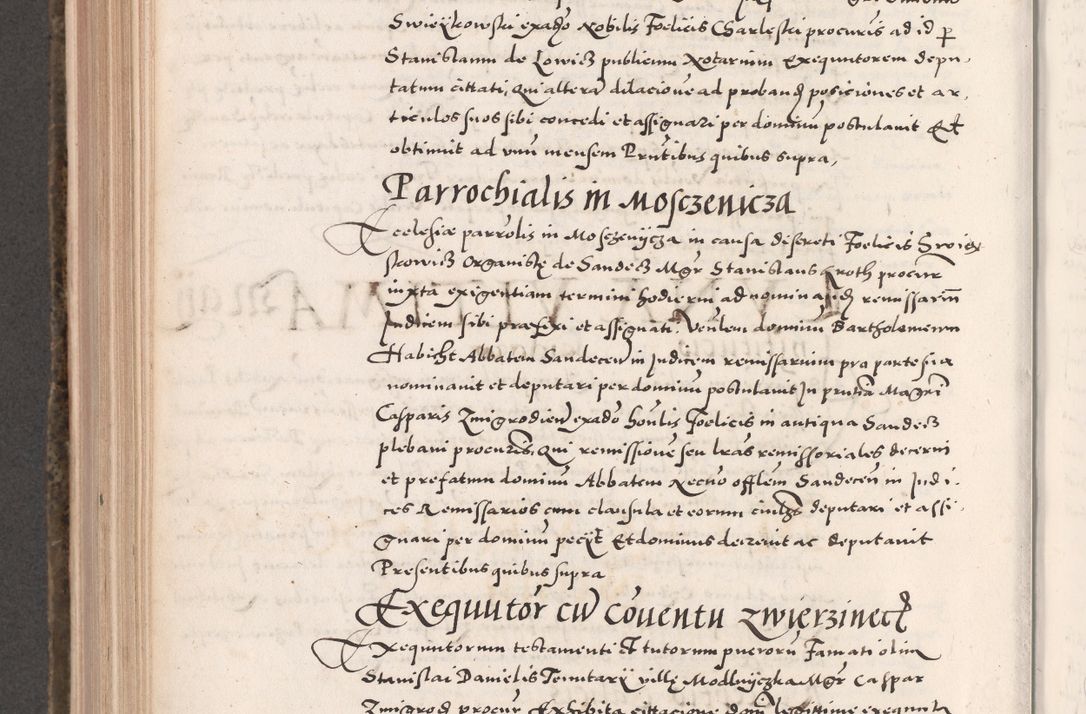 Swieykowski exadō Nobilis Foelicis Charleski procuris ad id p
Stanislaum de Lowicz publicum Notarium Exequutorem depu
tatum cittati, Qui alteram dilacionem ad proband posiciones et ar
ticulos suos sibi concedi et assignari per dominū postulavit Et
obtinuit ad unū mensem Prntibus quibus supra,
Parrochialis in Mosczenicza
Ecclesiæ parrolis in Mosczenycza in causa discreti Foelicis Swiex
kowicz Organistę de Sandecz Mgr Stanislaus Kroth procur
iuxta exigentiam termini hodierni ad nominand remissarium
Iudicem sibi præfixi et assignati. Venlem dominū Bartholomeum
Habicht Abbatem Sandecen in Judicem remissarium pro parte sua
nominavit et deputari per dominū postulavit In prntia Magri
Casparis Zmigrodien exadō honlis Foelicis in antiqua Sandecz
plebani procuris, Qui remissionē seu lras remissoriales decerni
et prefatum dominū Abbatem Necnō offlem Sandecen in Judi
ces Remissarios cum clausula et eorum cuiuslz deputari et assi
gnari per dominū pecÿt Et dominus decrevit ac deputavit
Presentibus quibus supra
Exequutor cū Coventu Zwierzinecz
Exequutorum testamenti et tutorum puerorū Famati olim
Stanislai Danielis Tenutarÿ villę Modlnyczka Mgr Caspar
Zmigrod procur Exhibita cittacione dom legittime exequuta